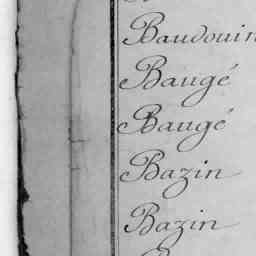 Baudouin
Baugé
Baugé
Bazin
Bazin